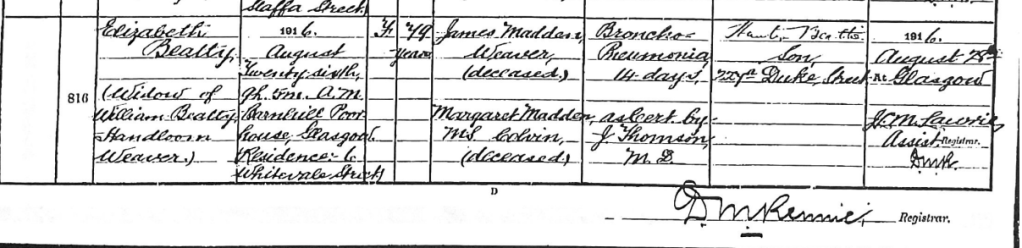 Staffa Street
Elizabeth
Beatty,
(Widow of
William Beatty,
Handloom
Weaver)
816
1916.
August
Twenty sixth,
9h. 5m. A.M.
Barnhill Poor
house, Glasgow
Residence:- 6
Whitevale Street
F.
79
years
James Madden,
Weaver,
(deceased)
Margaret Madden,
MS Colvin,
(deceased)
Broncho-
Pneumonia,
14 days,
as cert by
J. Thomson,
M.D
Beattie
Son,
227A Duke Street
1916.
August 28th
At Glasgow
Assist Registrar.
DMR.
D
D. McRennie, Registrar.